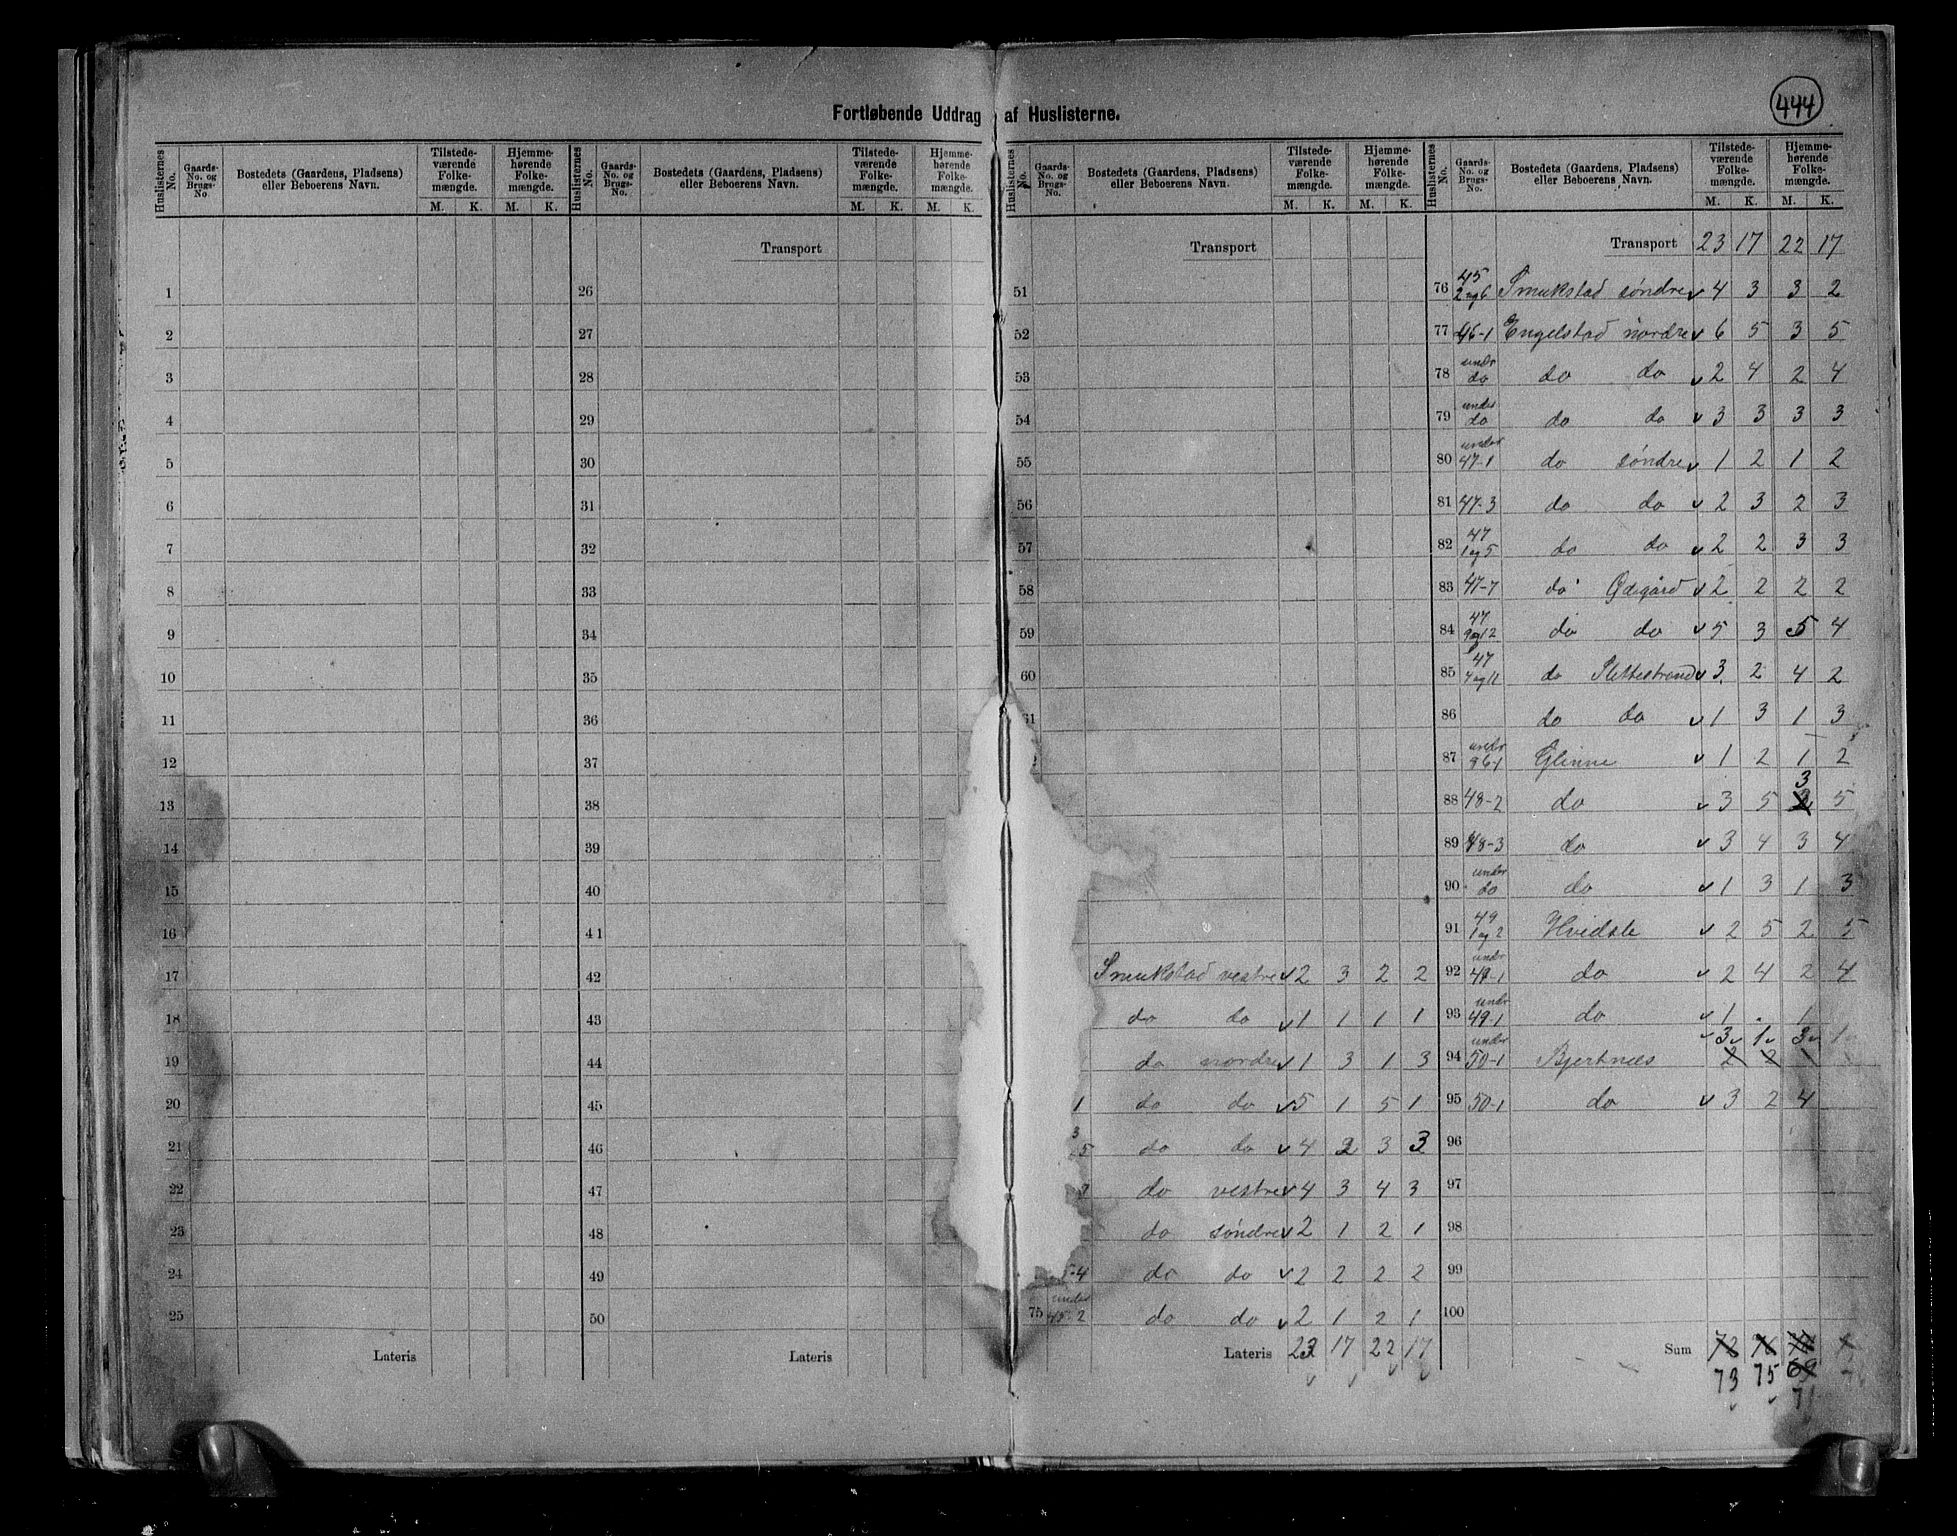 444
Fortløbende Uddrag af Huslisterne.
Huslisternes No. Gaards-No. og Brugs-No Bostedets (Gaardens, Pladsens) eller Beboerens Navn. Tilstedeværende Folkemængde. M. K. Hjemmehørende Folkemængde. M. K.
Huslisternes No. Gaards-No. og Brugs-No. Bostedets (Gaardens, Pladsens) eller Beboerens Navn. Tilstedeværende Folkemængde. M. K. Hjemmehørende Folkemængde. M. K.
Transport
1 26
2 27
3 28
4 29
5 30
6 31
7 32
8 33
9 34
10 35
11 36
12 37
13 38
14 39
15 40
16 41
17 42
18 43
19 44
20 45
21 46
22 47
23 48
24 49
25 50
Lateris Lateris
Huslisternes No. Gaards-No. og Brugs-No. Bostedets (Gaardens, Pladsens) eller Beboerens Navn. Tilstedeværende Folkemængde. M. K. Hjemmehørende Folkemængde. M. K.
Transport
51
52
53
54
55
56
57
58
59
60
61
Smukstad vestre v 2 3 2 2
do do v 1 1 1 1
do nordre v 1 3 1 3
1 do do v 5 1 5 1
3 5 do do v 4 2 3 3
do vestre v 4 3 4 3
do søndre v 2 1 2 1
-4 do do v 2 2 2 2
75 under 45-2 do do v 2 1 2 1
Lateris 23 17 22 17
Huslisternes No. Gaards-No. og Brugs-No. Bostedets (Gaardens, Pladsens) eller Beboerens Navn. Tilstedeværende Folkemængde. M. K. Hjemmehørende Folkemængde. M. K.
Transport 23 17 22 17
76 45 2 og 6 Smukstad søndre v 4 3 3 2
77 46-1 Engelstad nordre v 6 5 3 5
78 under do do do v 2 4 2 4
79 under do do do v 3 3 3 3
80 under 47-1 do søndre v 1 2 1 2
81 47-3 do do v 2 3 2 3
82 47 1 og 5 do do v 2 2 3 3
83 47-7 do Ødegård v 2 2 2 2
84 47 9 og 12 do do v 5 3 5 4
85 47 4 og 11 do Slettestrand v 3 2 4 2
86 do do v 1 3 1 3
87 under Glinne v 1 2 1 2
88 48-2 do v 3 5 3 5
89 48-3 do v 3 4 3 4
90 under do do v 1 3 1 3
91 49 1 og 2 Hvidste v 2 5 2 5
92 under 49-1 do v 2 4 2 4
93 under 49-1 do v 1 . 1
94 under 50-1 Bjertnæs v 3 1 3 1
2 2
95 50-1 do v 3 2 4
96
97
98
99
100
Sum
73 75 69
71